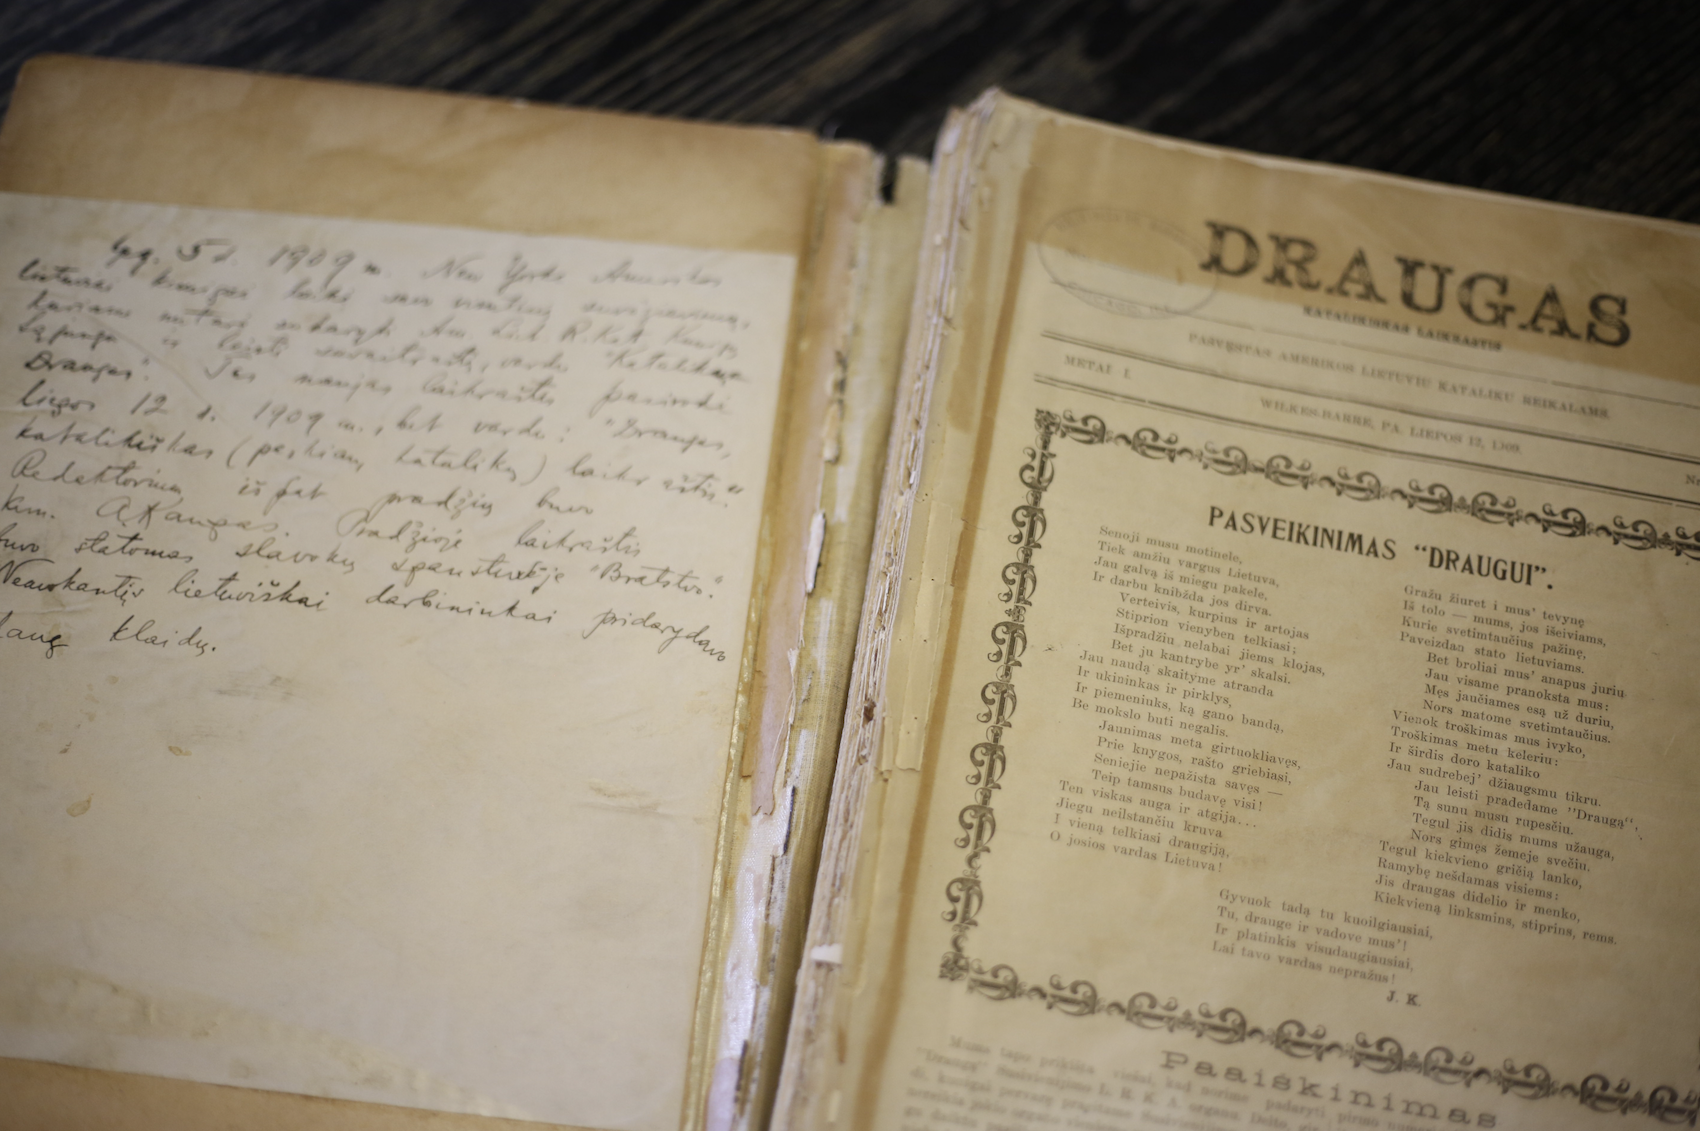 5 d. 1909 m. New Yorke Amerikos
lietuviai kunigai laikė savo
nutarė sudaryti Am. Liet. R. Kat. Kunigų
Sąjungą ir leisti savaitraštį, vardu "Katalikų
Draugas". Tas naujas laikraštis pasirodė
liepos 12 d. 1909 m., bet vardu: "Draugas,
katalikiškas ( katalikų) laikraštis."
Redaktorium iš pat pradžių buvo
kun. A. Kaupas. Pradžioje laikraštis
buvo statomas slavokų spaustuvėje "Bratstvo".
Nemokantįs lietuviškai darbininkai pridarydavo
daug klaidų.
DRAUGAS
KATALIKISKAS LAIKRASTIS
PASVĘSTAS AMERIKOS LIETUVIU KATALIKU REIKALAMS.
METAI I.
WILKES-BARRE, PA. LIEPOS 12, 1909.
PASVEIKINIMAS "DRAUGUI".
Senoji musu motinele,
Tiek amžiu vargus Lietuva,
Jau galvą iš miegu pakele,
Ir darbu knibžda jos dirva.
Verteivis, kurpius ir artojas
Stiprion vienyben telkiasi;
Išpradžiu nelabai jiems klojas,
Bet ju kantrybe yr' skalsi.
Jau naudą skaityme atranda
Ir ukininkas ir pirklys,
Ir piemeniuks, ką gano bandą,
Be mokslo buti negalis.
Jaunimas meta girtuokliavęs,
Prie knygos, rašto griebiasi,
Seniejie nepažista savęs —
Teip tamsus budavę visi!
Ten viskas auga ir atgija...
Jiegu neilstančiu kruva
I vieną telkiasi draugiją,
O josios vardas Lietuva!
Gražu žiuret i mus' tevynę
Iš tolo — mums, jos išeiviams,
Kurie svetimtaučius pažinę,
Paveizdan stato lietuviams.
Bet broliai mus' anapus juriu
Jau visame pranoksta mus:
Męs jaučiames esą už duriu,
Nors matome svetimtaučius.
Vienok troškimas mus ivyko,
Troškimas metu keleriu:
Ir širdis doro kataliko
Jau sudrebej' džiaugsmu tikru.
Jau leisti pradedame "Draugą",
Tą sunu musu rupesčiu.
Tegul jis didis mums užauga,
Nors gimęs žemeje svečiu.
Tegul kiekvieno gričią lanko,
Ramybę nešdamas visiems:
Jis draugas didelio ir menko,
Kiekvieną linksmins, stiprins, rems.
Gyvuok tadą tu kuoilgiausiai,
Tu, drauge ir vadove mus'!
Ir platinkis visudaugiausiai,
Lai tavo vardas nepražus!
J. K.
Paaiškinimas